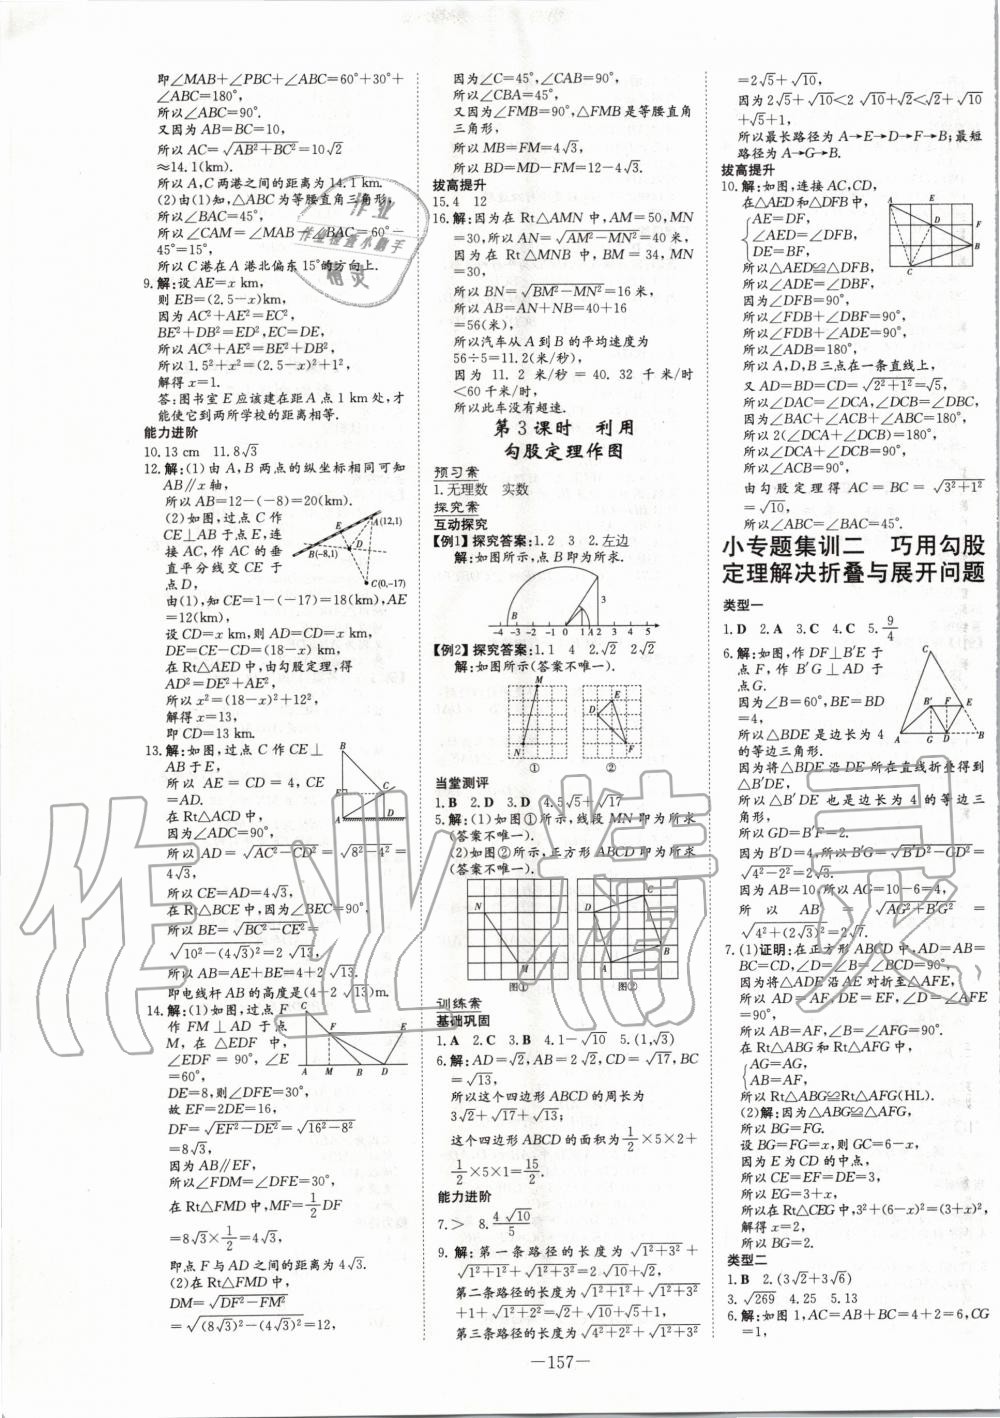 即∠MAB+∠PBC+∠ABC=60°+30°+
∠ABC=180°,
所以∠ABC=90°.
又因为AB=BC=10,
所以AC=√(AB²+BC²)=10√2
≈14.1(km).
所以A,C两港之间的距离为14.1 km.
(2)由(1)知,△ABC为等腰直角三角形,
所以∠BAC=45°,
所以∠CAM=∠MAB-∠BAC=60°-
45°=15°,
所以C港在A港北偏东15°的方向上.
9.解:设AE=x km,
则EB=(2.5-x)km,
因为AC²+AE²=EC²,
BE²+DB²=ED²,EC=DE,
所以AC²+AE²=BE²+DB²,
所以1.5²+x²=(2.5-x)²+1²,
解得x=1.
答:图书室E应该建在距A点1 km处,才
能使它到两所学校的距离相等.
能力进阶
10.13 cm 11.8√3
12.解:(1)由A,B两点的纵坐标相同可知
AB∥x轴,
所以AB=12-(-8)=20(km).
(2)如图,过点C作
CE⊥AB于点E,连
接AC,作AC的垂
直平分线交CE于
点D,
由(1),知CE=1-(-17)=18(km),AE
=12(km),
设CD=x km,则AD=CD=x km,
DE=CE-CD=(18-x)km,
在Rt△AED中,由勾股定理,得
AD²=DE²+AE²,
所以x²=(18-x)²+12²,
解得x=13,
即CD=13 km.
E A(12,1)
B(-8,1) D
C(0,-17)
13.解:如图,过点C作CE⊥
AB于E,
所以AE=CD=4,CE
=AD.
在Rt△ACD中,
因为∠ADC=90°,
所以AD=√(AC²-CD²)=√(8²-4²)=
4√3,
所以CE=AD=4√3,
在Rt△BCE中,因为∠BEC=90°,
所以BE=√(BC²-CE²)=
√(10²-(4√3)²)=2√13,
所以AB=AE+BE=4+2√13.
即电线杆AB的高度是(4+2√13)m.
B
E C
A D
14.解:(1)如图,过点F
作FM⊥AD于点
M,在△EDF中,
∠EDF=90°,∠E
=60°,
DE=8,则∠DFE=30°,
故EF=2DE=16,
DF=√(EF²-DE²)=√(16²-8²)
=8√3,
因为AB∥EF,
所以∠FDM=∠DFE=30°,
在Rt△FMD中,MF=1/2DF
=8√3×1/2=4√3,
即点F与AD之间的距离为4√3.
(2)在Rt△FMD中,
DM=√(DF²-FM²)
=√((8√3)²-(4√3)²)=12,
C
F E
A M B D
因为∠C=45°,∠CAB=90°,
所以∠CBA=45°,
又因为∠FMB=90°,△FMB是等腰直角
三角形,
所以MB=FM=4√3,
所以BD=MD-FM=12-4√3.
拔高提升
15.4 12
16.解:因为在Rt△AMN中,AM=50,MN
=30,所以AN=√(AM²-MN²)=40米,
因为在Rt△MNB中,BM=34,MN
=30,
所以BN=√(BM²-MN²)=16米,
所以AB=AN+NB=40+16
=56(米),
所以汽车从A到B的平均速度为
56÷5=11.2(米/秒),
因为11.2米/秒=40.32千米/时
<60千米/时,
所以此车没有超速.
第3课时 利用
勾股定理作图
预习案
1.无理数 实数
探究案
互动探究
【例1】探究答案:1.2 3 2.左边
解:如图所示,点B即为所求.
3
B
-4 -3 -2 -1 0 1 A 2 3 4 5
【例2】探究答案:1.1 4 2.√2 2√2
解:如图所示(答案不唯一).
M N ①
E D F ②
当堂测评
1.B 2.D 3.D 4.5√5+√17
5.解:(1)如图①所示,线段MN即为所求
(答案不唯一).
(2)如图②所示,正方形ABCD即为所求
(答案不唯一).
N M 图①
C D A B 图②
训练案
基础巩固
1.A 2.C 3.B 4.1-√10 5.(1,√3)
6.解:AD=√2,AB=2√2,CD=√17,BC
=√13,
所以这个四边形ABCD的周长为
3√2+√17+√13;
这个四边形ABCD的面积为1/2×5×2+
1/2×5×1=15/2.
能力进阶
7.> 8.4√10/5
9.解:第一条路径的长度为√(1²+3²)+
√(1²+1²)+√(1²+3²)=2√10+√2,
第二条路径的长度为√(1²+1²)+√(1²+3²)
+1+√(1²+2²)=√2+√10+√5+1,
第三条路径的长度为√(4²+2²)+√(1²+3²)
=2√5+√10,
因为2√5+√10<2√10+√2<√2+√10
+√5+1,
所以最长路径为A→E→D→F→B;最短
路径为A→G→B.
拔高提升
10.解:如图,连接AC,CD,
在△AED和△DFB中,
AE=DF,
∠AED=∠DFB,
DE=BF,
所以△AED≌△DFB,
所以∠ADE=∠DBF,
因为∠DFB=90°,
所以∠FDB+∠DBF=90°,
所以∠FDB+∠ADE=90°,
所以∠ADB=180°,
所以A,D,B三点在一条直线上,
又AD=BD=CD=√(2²+1²)=√5,
所以∠DAC=∠DCA,∠DCB=∠DBC,
因为∠BAC+∠ACB+∠ABC=180°,
所以2(∠DCA+∠DCB)=180°,
所以∠DCA+∠DCB=90°,
所以∠ACB=90°,
由勾股定理得AC=BC=√(3²+1²)
=√10,
所以∠ABC=∠BAC=45°.
A D B C
小专题集训二 巧用勾股
定理解决折叠与展开问题
类型一
1.D 2.A 3.C 4.C 5.9/4
6.解:如图,作DF⊥B′E于
点F,作B′G⊥AD于
点G.
因为∠B=60°,BE=BD
=4,
所以△BDE是边长为4
的等边三角形.
因为将△BDE沿DE所在直线折叠得到
△B′DE,
所以△B′DE也是边长为4的等边三
角形,
所以GD=B′F=2.
因为B′D=4,所以B′G=√(B′D²-GD²)=
√(4²-2²)=2√3.
因为AB=10,所以AG=10-6=4,
所以AB′=√(AG²+B′G²)=
√(4²+(2√3)²)=2√7.
C
B′ F E
A G D B
7.(1)证明:在正方形ABCD中,AD=AB=
BC=CD,∠D=∠B=∠BCD=90°,
因为将△ADE沿AE对折至△AFE,
所以AD=AF,DE=EF,∠D=∠AFE
=90°,
所以AB=AF,∠B=∠AFG=90°.
在Rt△ABG和Rt△AFG中,
AG=AG,
AB=AF,
所以Rt△ABG≌Rt△AFG(HL).
(2)解:因为△ABG≌△AFG,
所以BG=FG.
设BG=FG=x,则GC=6-x,
因为E为CD的中点,
所以CE=EF=DE=3,
所以EG=3+x,
所以在Rt△CEG中,3²+(6-x)²=(3+x)²,
解得x=2,
所以BG=2.
类型二
1.B 2.(3√2+3√6)
3.√269 4.25 5.13
6.解:如图1,AC=AB+BC=4+2=6,CG
=1,
—157—